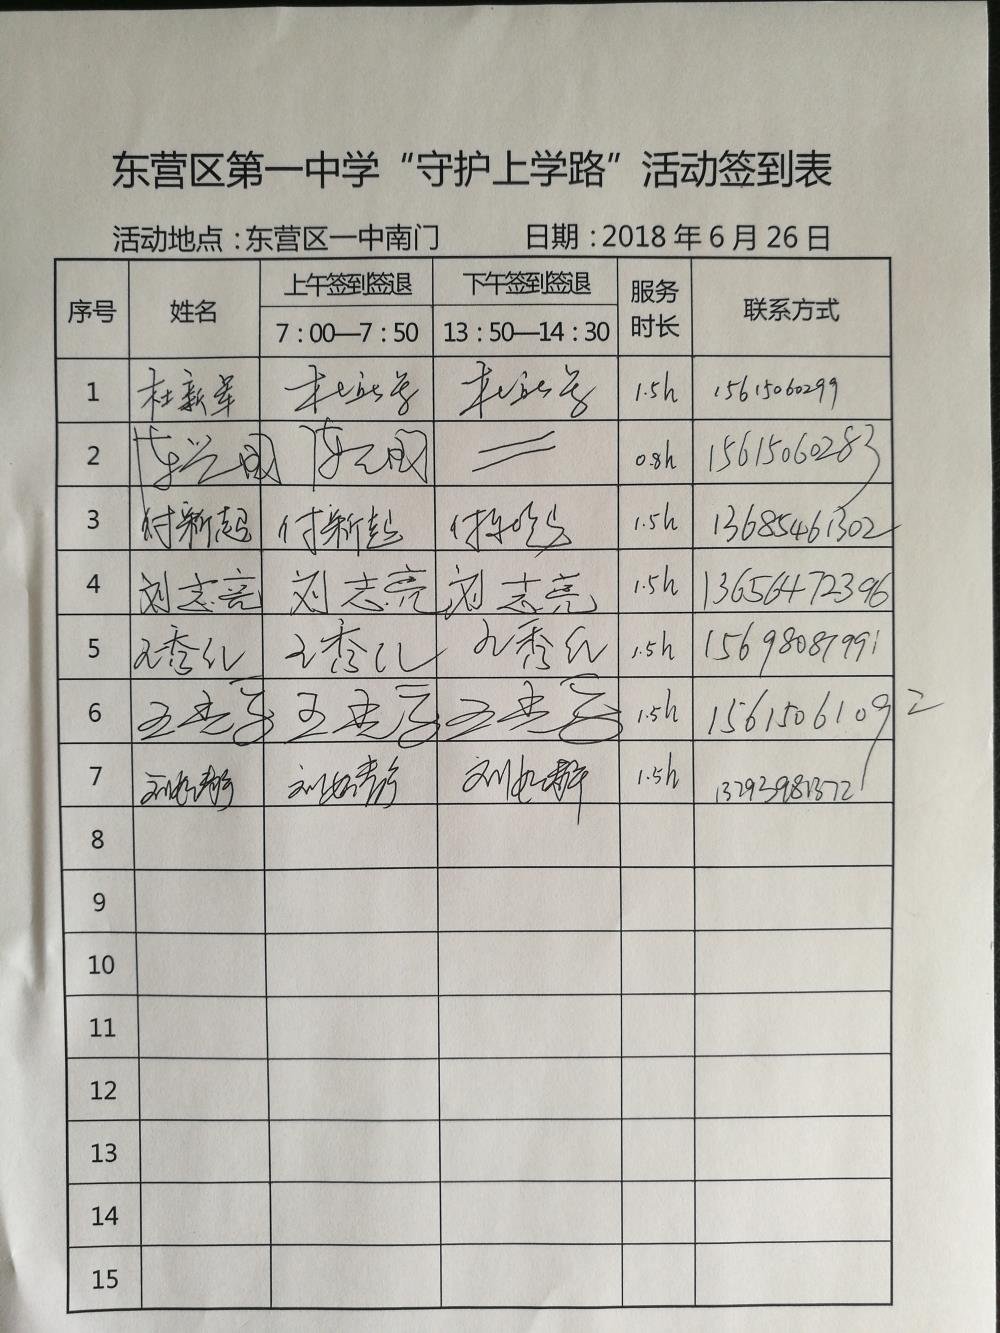 东营区第一中学“守护上学路”活动签到表
活动地点：东营区一中南门 日期：2018年6月26日
序号 姓名 上午签到签退 7：00—7：50 下午签到签退 13：50—14：30 服务时长 联系方式
1 杜新军 1.5h 15615060299
2 陈兴国 陈兴国 0.8h 15615060283
3 付新起 付新起 1.5h 13685461302
4 刘志亮 刘志亮 刘志亮 1.5h 13656472396
5 1.5h 15698087991
6 1.5h 15615061092
7 1.5h 13293981372
8
9
10
11
12
13
14
15